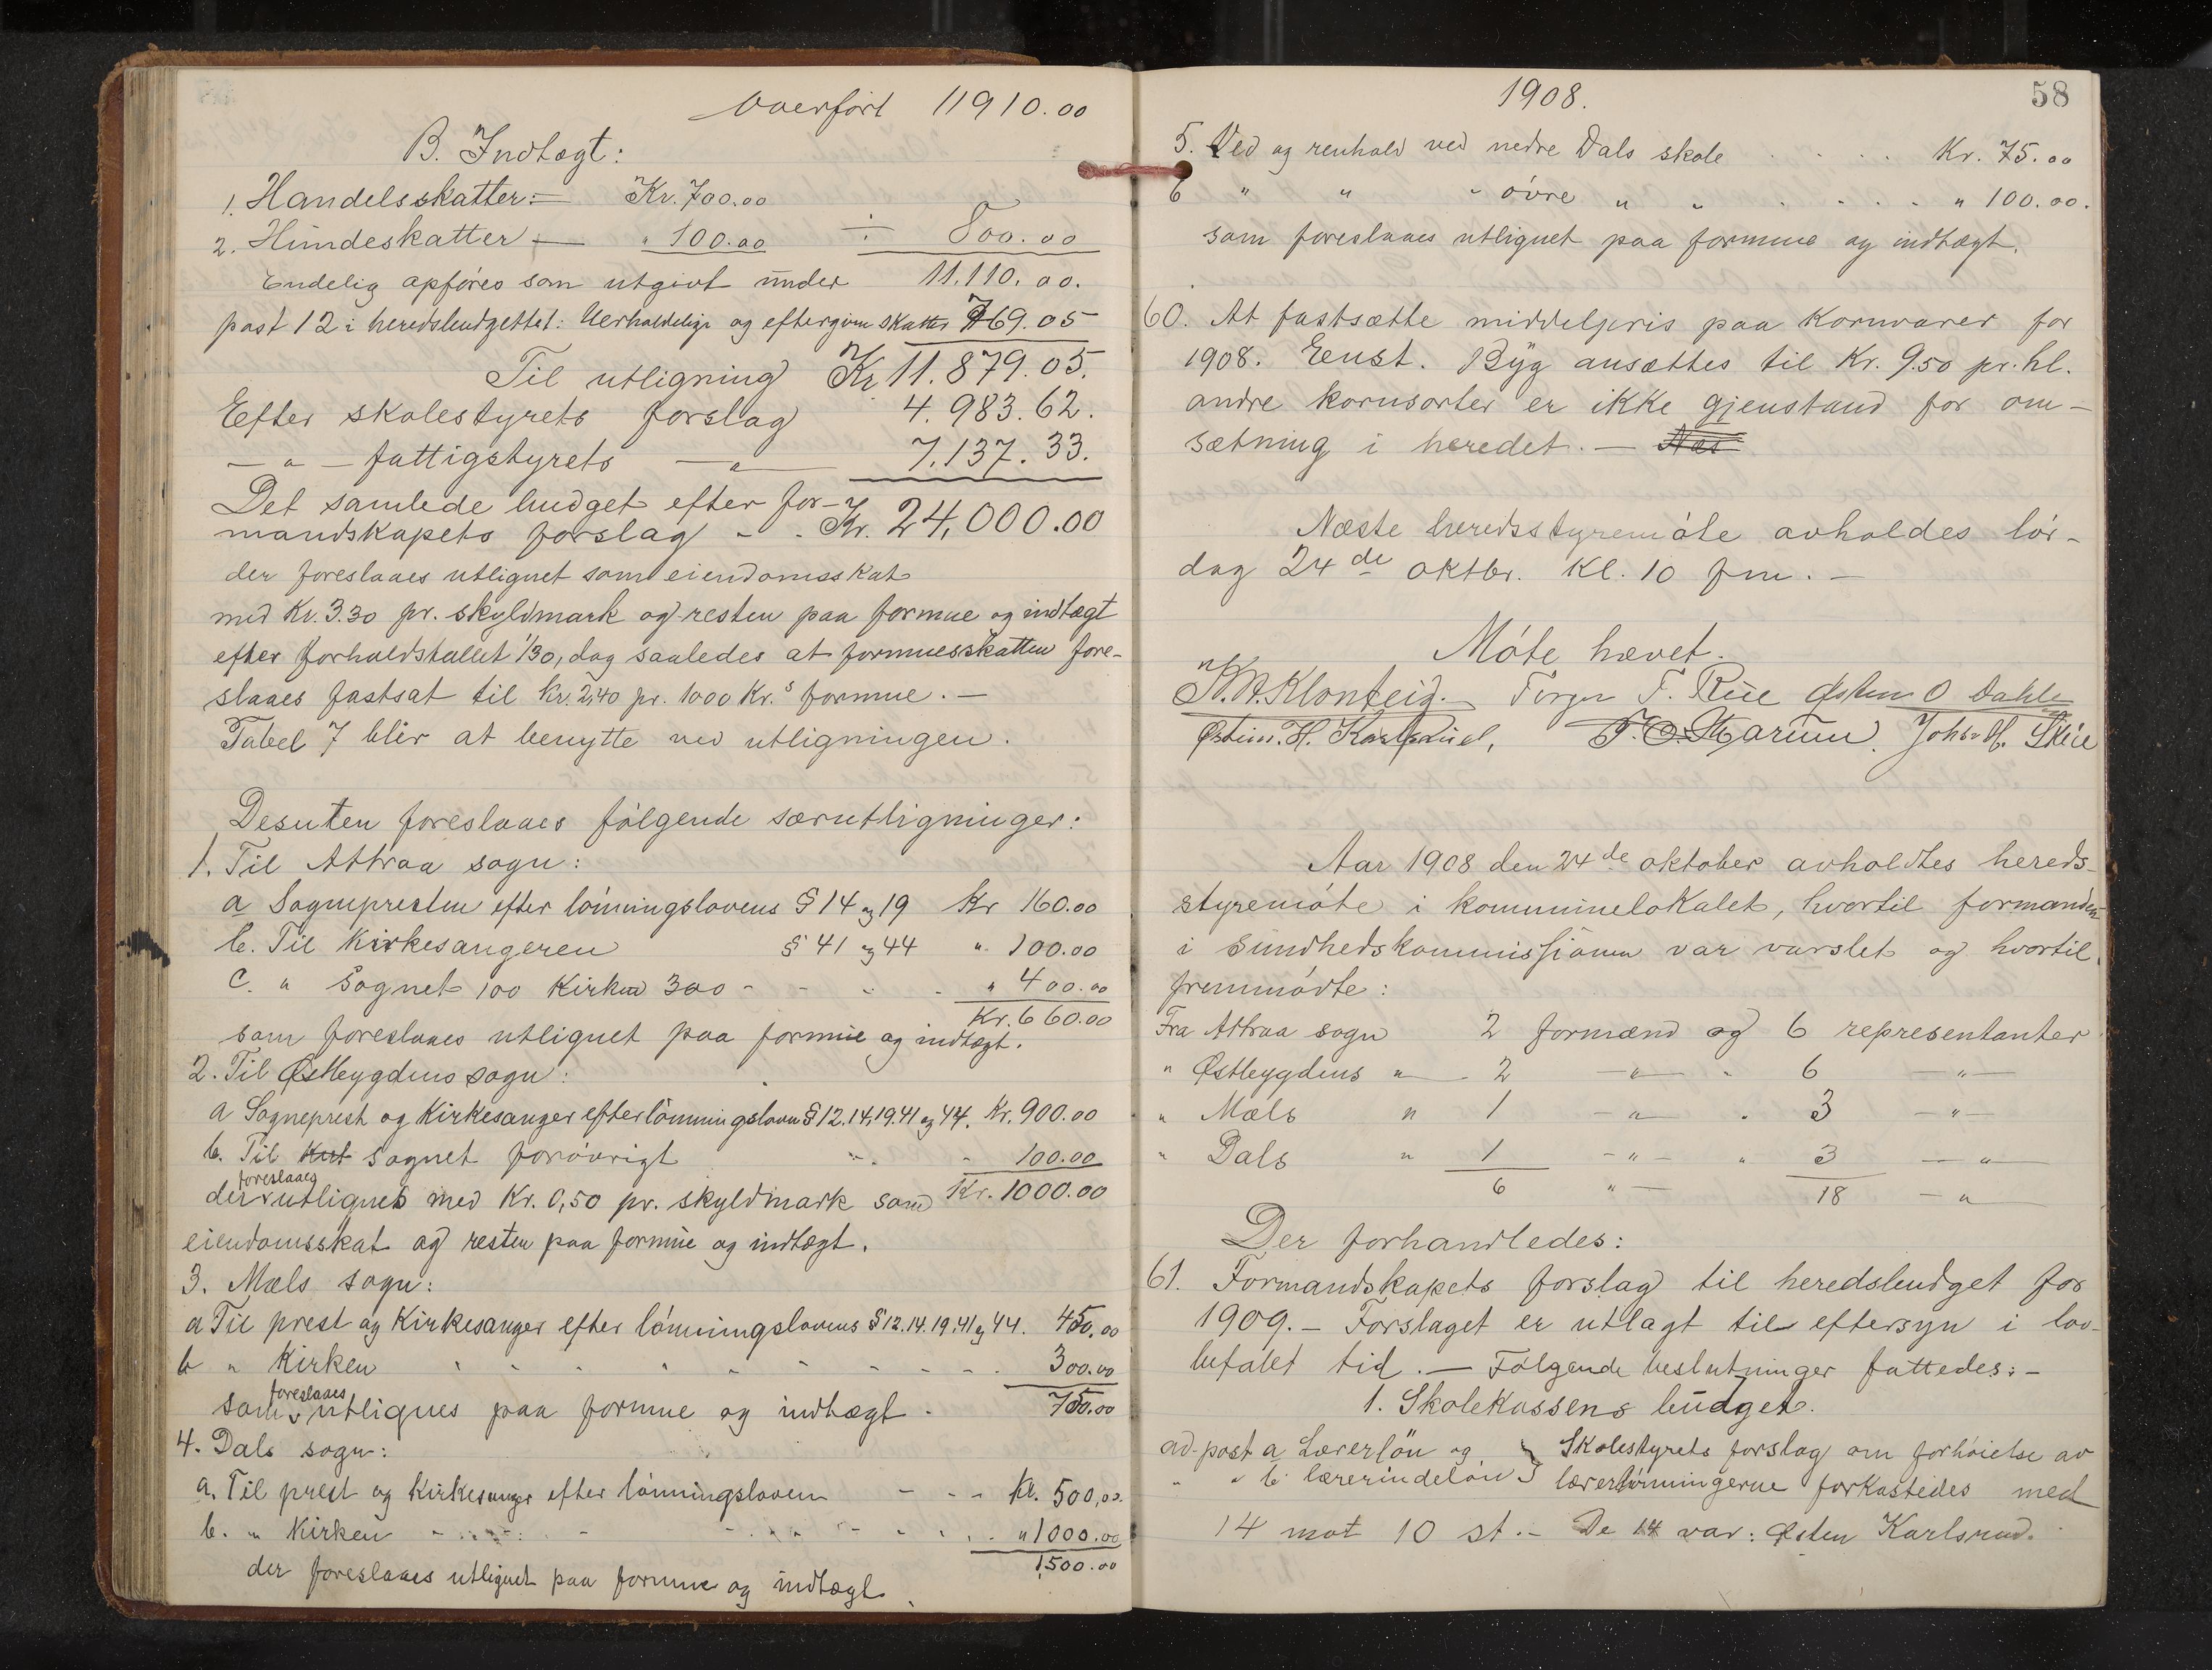 Overført 11910.00
B. Indtægt:
1. Handelsskatter: — Kr. 700.00
2. Hundeskatter — " 100.00 ÷ 800.00
Endelig opføres som utgivt under 11.110.00.
post 12 i heredsbudgettet: Uerholdelige og eftergivne skatter 769.05
Til utligning Kr 11.879.05.
Efter skolestyrets forslag 4.983.62.
— " — fattigstyrets — " — 7.137.33.
Det samlede budget efter for-
mandskapets forslag - . Kr. 24,000.00
der foreslaaes utlignet som eiendomsskat
med Kr. 3.30 pr. skyldmark og resten paa formue og indtægt
efter forholdstallet 1/30, dog saaledes at formuesskatten fore-
slaaes fastsat til kr. 2,40 pr. 1000 Kr.s formue. —
Tabel 7 blir at benytte ved utligningen.
Desuten foreslaaes følgende særutligninger:
1. Til Attraa sogn:
a Sognepresten efter lønningslovens § 14 og 19 Kr 160.00
b. Til Kirkesangeren § 41 og 44 " 100.00
c. " Sognet 100 Kirken 300 - - - - " 400.00
Kr. 660.00
som foreslaaes utlignet paa formue og indtægt.
2. Til Østbygdens sogn:
a Sogneprest og Kirkesanger efter lønningsloven § 12.14.19.41 og 44. Kr. 900.00
b. Til sognet forøvrigt " . - 100.00
der foreslaaes utlignet med Kr. 0,50 pr. skyldmark som Kr. 1000.00
eiendomsskat og resten paa formue og indtægt.
3. Mæls sogn:
a Til prest og Kirkesanger efter lønningslovens § 12.14.19.41 og 44. 450.00
b " Kirken - - - - - - - - - 300.00
som foreslaaes utlignes paa formue og indtægt. 750.00
4. Dals sogn:
a. Til prest og Kirkesanger efter lønningsloven - - - Kr. 500,00.
b. " Kirken - - - - - - - - " 1000.00
1,500.00
der foreslaaes utlignet paa formue og indtægt.
1908.
58
5. Ved og renhold ved nedre Dals skole . . . . Kr. 75.00
6 " " " øvre " " . . . . " 100.00.
som foreslaaes utlignet paa formue og indtægt.
60. At fastsætte middelpris paa kornvarer for
1908. Eenst. Byg ansættes til Kr. 9.50 pr. hl.
andre kornsorter er ikke gjenstand for om-
sætning i heredet. — Næs
Næste heredsstyremøte avholdes lør-
dag 24de oktbr. Kl. 10 fm. —
Møte hævet.
Torger T. Rue Østen O Dahle
Østein. H. Karlsrud, Johs. H. Skeie
Aar 1908 den 24de oktober avholdtes hereds-
styremøte i kommunelokalet, hvortil formanden
i sundhedskommissionen var varslet og hvortil
fremmødte:
Fra Attraa sogn 2 formænd og 6 representanter
" Østbygdens " 2 — " — " 6 — " —
" Mæls " 1 — " — " 3 — " —
" Dals " 1 — " — " 3 — " —
6 " — 18 — " —
Der forhandledes:
61. Formandskapets forslag til heredsbudget for
1909. — Forslaget er utlagt til eftersyn i lov-
befalet tid. — Følgende beslutninger fattedes: -
1. Skolekassens budget.
ad. post a Lærerløn og } Skolestyrets forslag om forhøielse av
" " b. lærerindeløn } lærerlønningerne forkastedes med
14 mot 10 st. - De 14 var: Østen Karlsrud.